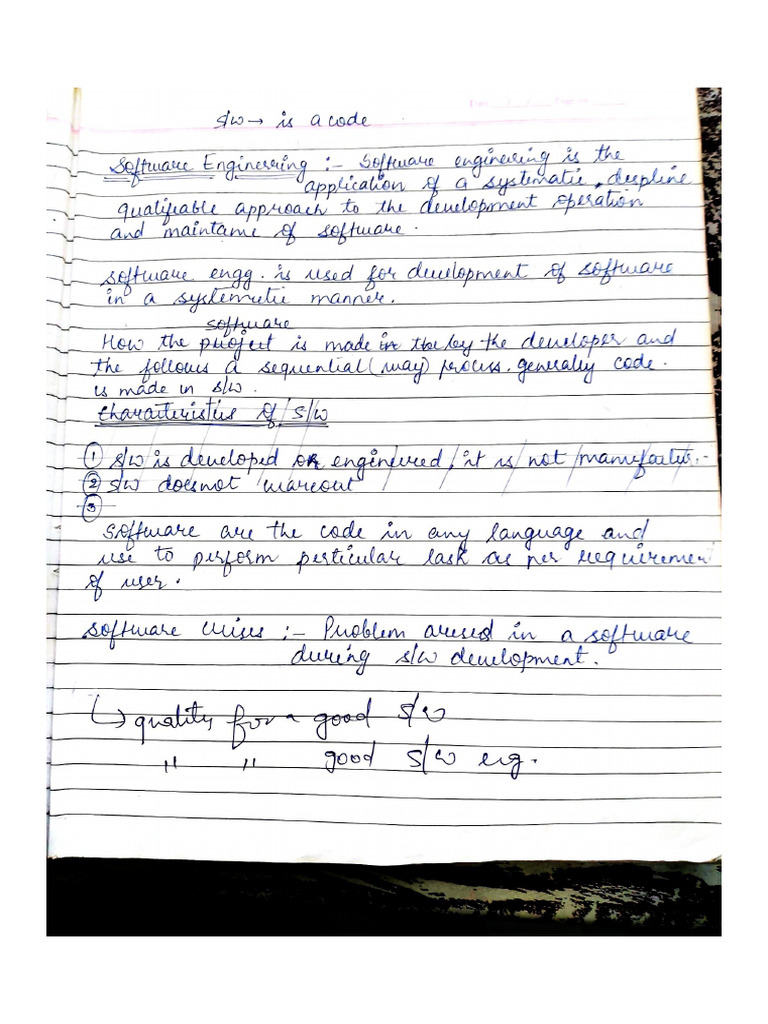 s/w → is a code
Software Engineering :- Software engineering is the
application of a systematic, despline
qualifiable approach to the development operation
and maintame of software.
software engg. is used for development of software
in a systemetic manner.
software
How the project is made in the by the developer and
the follows a sequential (way) process. generally code.
is made in s/w.
Charaiteristies of S/W
① s/w is developed or engineered, it is not manufactur.-
② s/w doesnot wareout
③
software are the code in any language and
use to perform perticular task as per requiremen
of user.
software crises :- Problem aresed in a software
during s/w development.
↳ quality for a good s/w
" " good s/w eng.